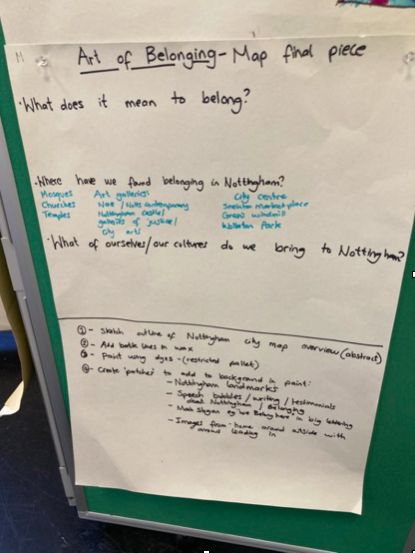 Art of Belonging - Map final piece
·What does it mean to belong?
·Where have we found belonging in Nottingham?
Mosques Art galleries: City centre
Churches New / Notts contemporary Sneinton market place
Temples Nottingham Castle/ Green's windmill
galleries of justice/ Wollaton Park
city arts
·What of ourselves/our cultures do we bring to Nottingham?
① - Sketch outline of Nottingham city map overview (abstract)
② - Add batik lines in wax
③ - Paint using dyes - (restricted pallet)
④ - Create 'patches' to add to background in paint:
- Nottingham landmarks
- Speech bubbles / writing / testimonials
about Nottingham / Belonging
- Main slogan eg 'we Belong here' in big lettering
- Images from home around outside with
arrows leading in